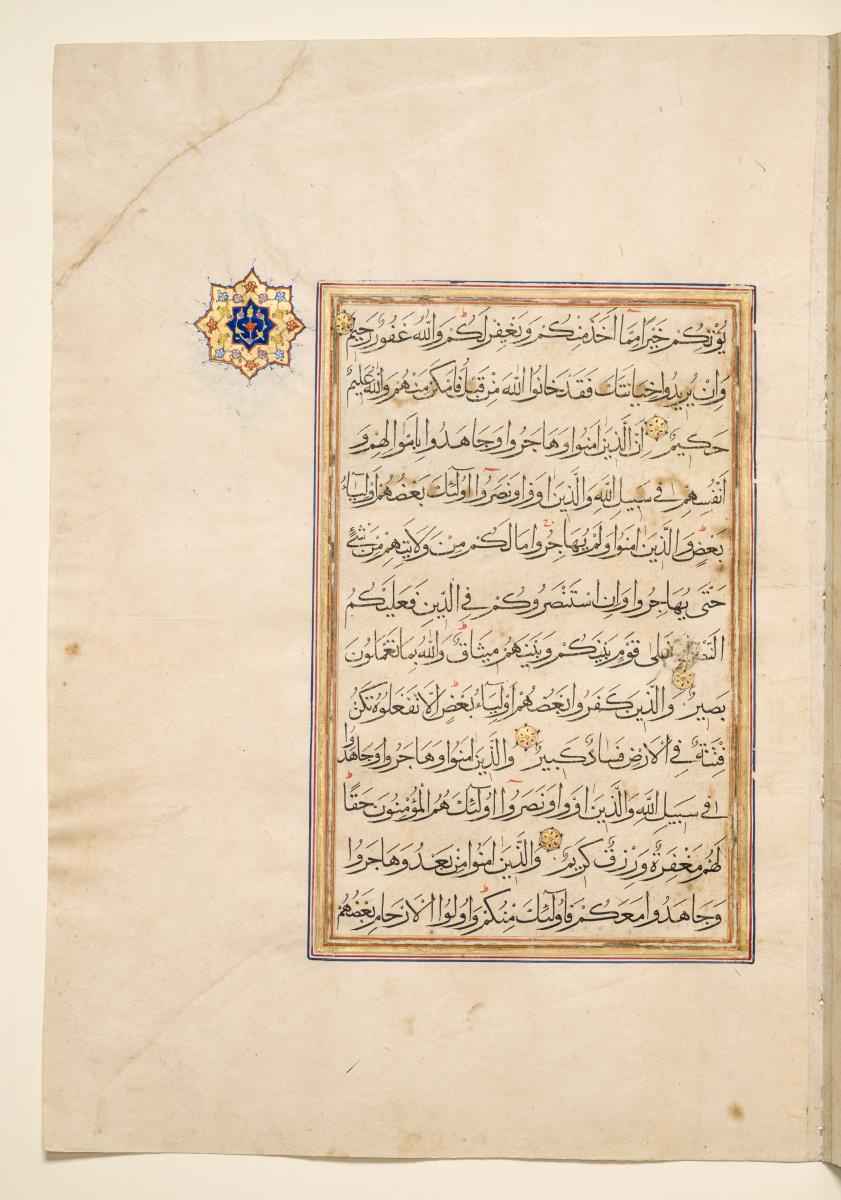 يُؤْتِكُمْ خَيْرًا مِمَّا أُخِذَ مِنْكُمْ وَيَغْفِرْ لَكُمْ وَاللهُ غَفُورٌ رَحِيمٌ
وَإِنْ يُرِيدُوا خِيَانَتَكَ فَقَدْ خَانُوا اللهَ مِنْ قَبْلُ فَأَمْكَنَ مِنْهُمْ وَاللهُ عَلِيمٌ
حَكِيمٌ إِنَّ الَّذِينَ اٰمَنُوا وَهَاجَرُوا وَجَاهَدُوا بِاَمْوَالِهِمْ وَ
اَنْفُسِهِمْ فِي سَبِيلِ اللهِ وَالَّذِينَ اٰوَوْا وَنَصَرُوا اُولٰٓئِكَ بَعْضُهُمْ اَوْلِيَاءُ
بَعْضٍ وَالَّذِينَ اٰمَنُوا وَلَمْ يُهَاجِرُوا مَا لَكُمْ مِنْ وَلَايَتِهِمْ مِنْ شَيْءٍ
حَتَّى يُهَاجِرُوا وَاِنِ اسْتَنْصَرُوكُمْ فِي الدِّينِ فَعَلَيْكُمُ
عَلٰى قَوْمٍ بَيْنَكُمْ وَبَيْنَهُمْ مِيثَاقٌ وَاللهُ بِمَا تَعْمَلُونَ
بَصِيرٌ وَالَّذِينَ كَفَرُوا بَعْضُهُمْ اَوْلِيَاءُ بَعْضٍ اِلَّا تَفْعَلُوهُ تَكُنْ
فِتْنَةٌ فِي الْاَرْضِ وَفَسَادٌ كَبِيرٌ وَالَّذِينَ اٰمَنُوا وَهَاجَرُوا وَجَاهَدُوا
فِي سَبِيلِ اللهِ وَالَّذِينَ اٰوَوْا وَنَصَرُوا اُولٰٓئِكَ هُمُ الْمُؤْمِنُونَ حَقًّا
لَهُمْ مَغْفِرَةٌ وَرِزْقٌ كَرِيمٌ وَالَّذِينَ اٰمَنُوا مِنْ بَعْدُ وَهَاجَرُوا
وَجَاهَدُوا مَعَكُمْ فَاُولٰٓئِكَ مِنْكُمْ وَاُولُوا الْاَرْحَامِ بَعْضُهُمْ